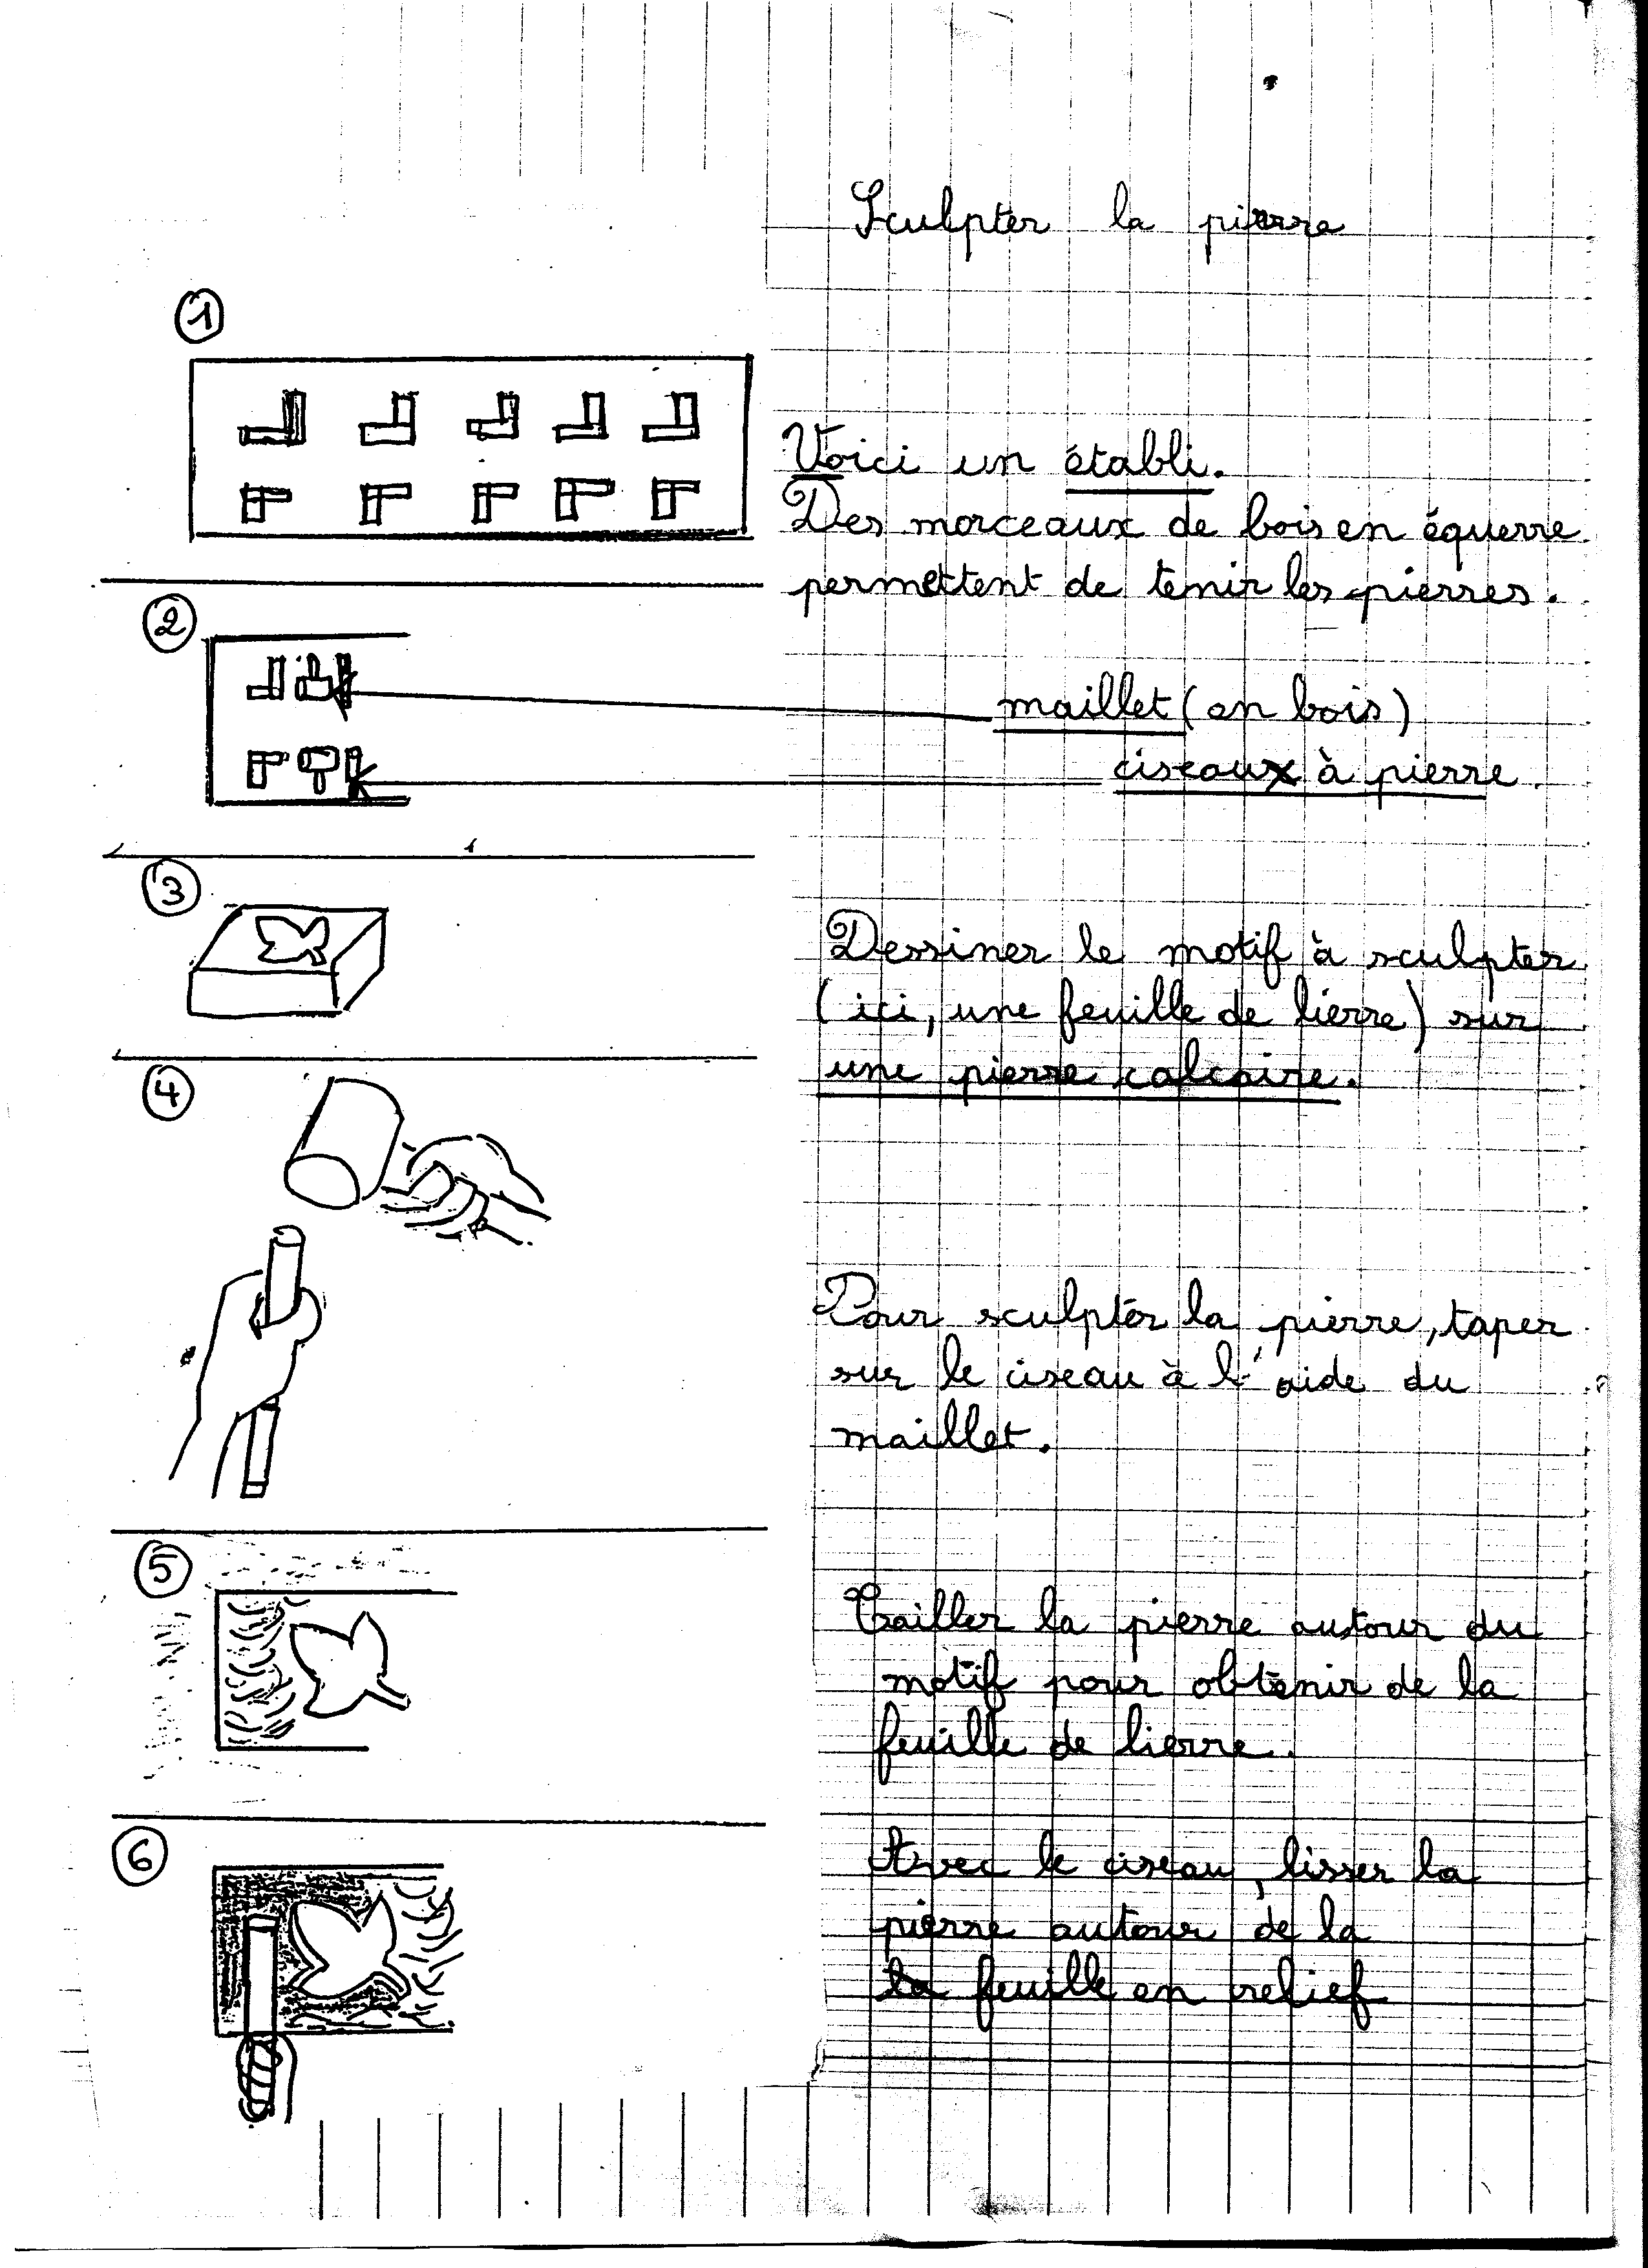 Sculpter la pierre
1
Voici un établi.
Des morceaux de bois en équerre
permettent de tenir les pierres.
2
maillet (en bois)
ciseaux à pierre.
3
Dessiner le motif à sculpter
(ici, une feuille de lierre) sur
une pierre calcaire.
4
Pour sculpter la pierre, taper
sur le ciseau à l'aide du
maillet.
5
Tailler la pierre autour du
motif pour obtenir de la
feuille de lierre.
6
Avec le ciseau, lisser la
pierre autour de la
la feuille en relief